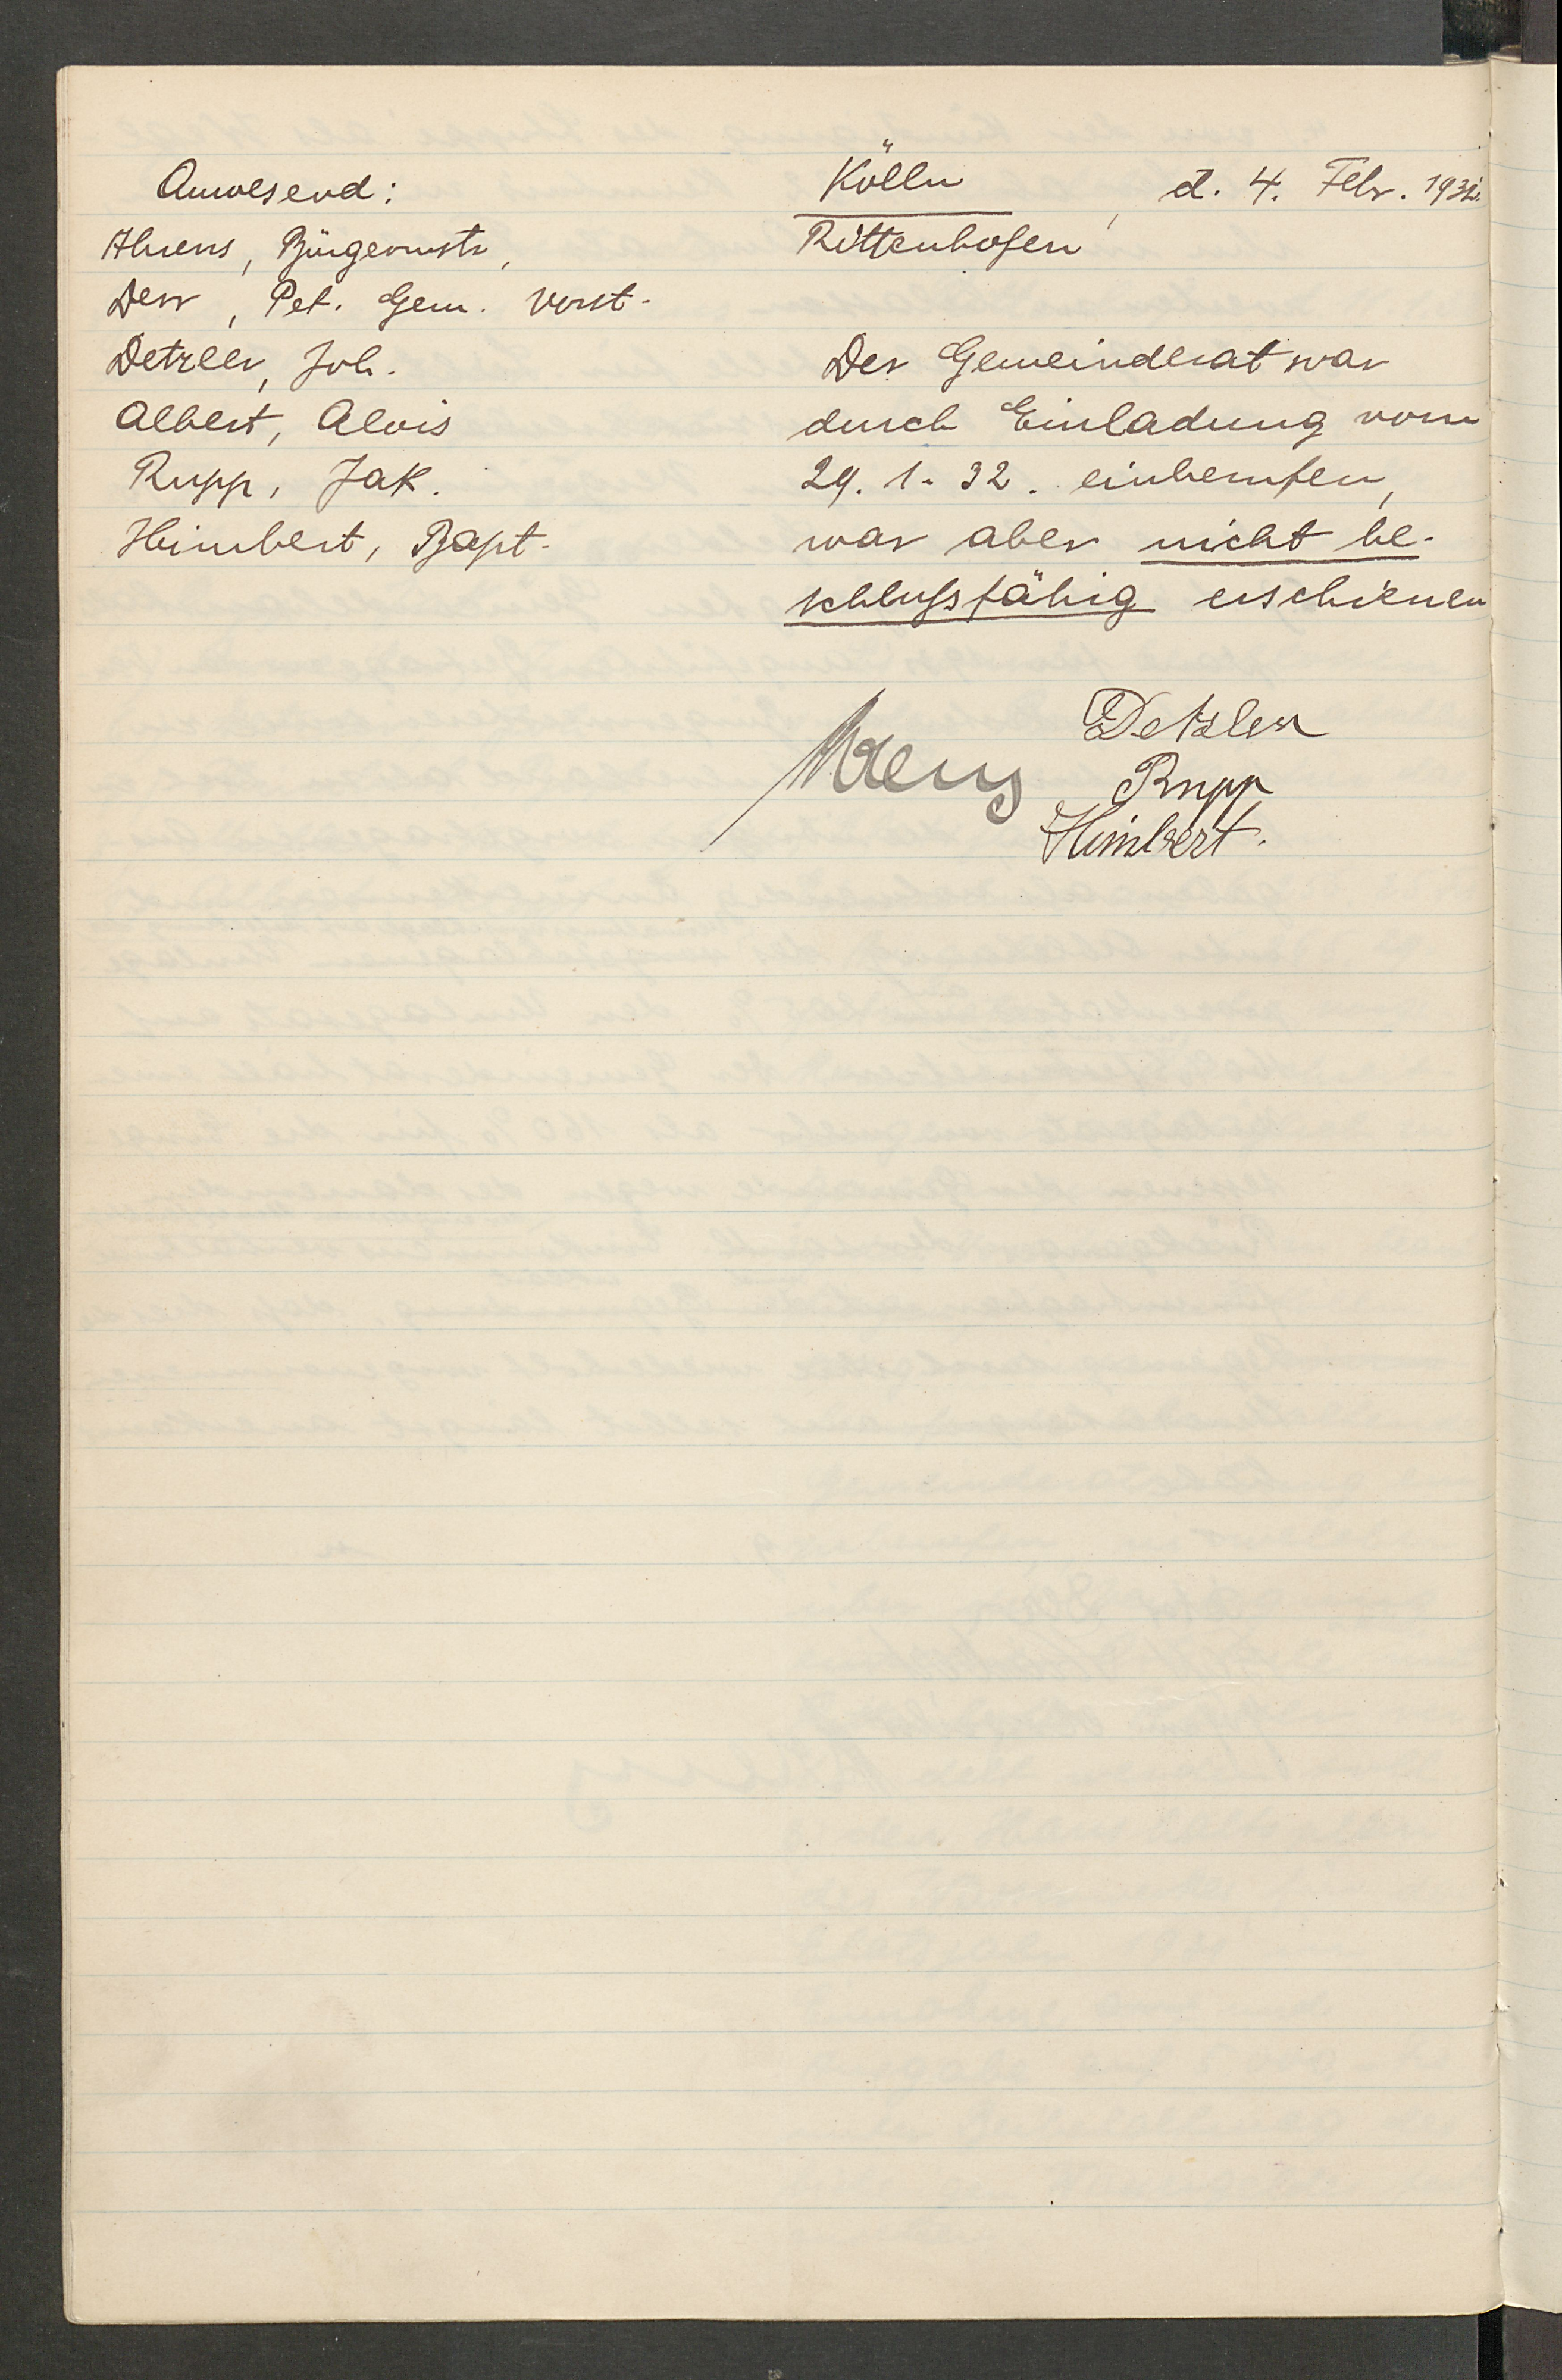 Anwesend:
Ahrens, Bürgermstr,
Derr, Pet. Gem. Vorst.
Detzler, Joh.
Albert, Alois
Rupp, Jak.
Himbert, Bapt.
Kölln
Rittenhofen, d. 4. Febr. 1932.
Der Gemeinderat war
durch Einladung vom
29. 1. 32. einberufen,
war aber nicht be-
schlußfähig erschienen
Ahrens
Detzler
Rupp
Himbert.